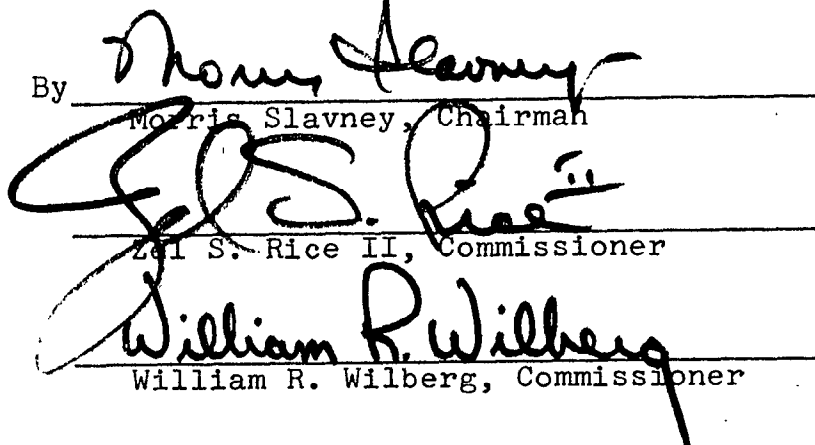 Morris Slavney
By
Morris Slavney, Chairman
Zel S. Rice II
Zel S. Rice II, Commissioner
William R. Wilberg
William R. Wilberg, Commissioner